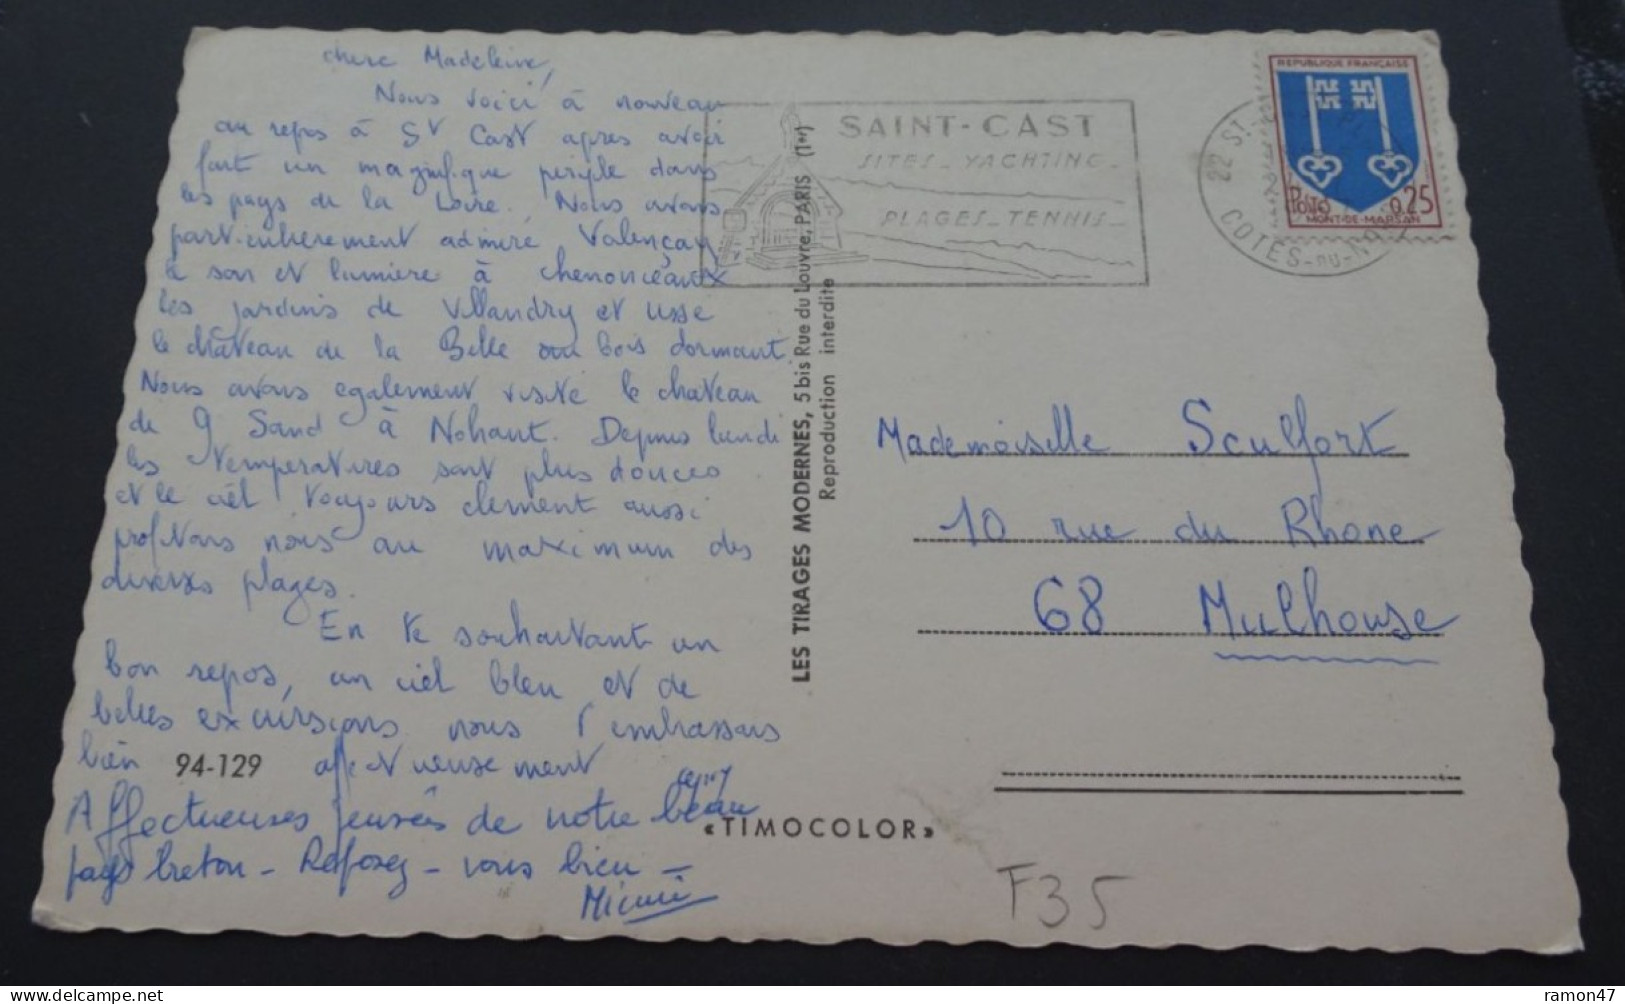 chere Madeleine,
Nous voici à nouveau
au repos à St Cast apres avoir
fait un magnifique periple dans
les pays de la Loire. Nous avons
particulierement admire Valençay
le son et lumière à Chenonceaux
les jardins de Villandry et Usse
le château de la Belle au bois dormant.
Nous avons egalement visité le chateau
de G Sand à Nohant. Depuis lundi
les temperatures sont plus douces
et le ciel toujours clement aussi
profitons nous au maximum des
diverses plages.
En te souhaitant un
bon repos, un ciel bleu et de
belles excursions nous t'embrassons
bien affectueusement
Affectueuses pensées de notre beau
pays breton - Reposez-vous bien -
94-129
LES TIRAGES MODERNES, 5 bis Rue du Louvre, PARIS (1er)
Reproduction interdite
«TIMOCOLOR»
SAINT-CAST
SITES - YACHTING -
PLAGES - TENNIS -
22 ST-
COTES-DU-NORD
REPUBLIQUE FRANÇAISE
POSTES 0,25
MONT-DE-MARSAN
Mademoiselle Sculfort
10 rue du Rhone
68 Mulhouse
F35
ramon47